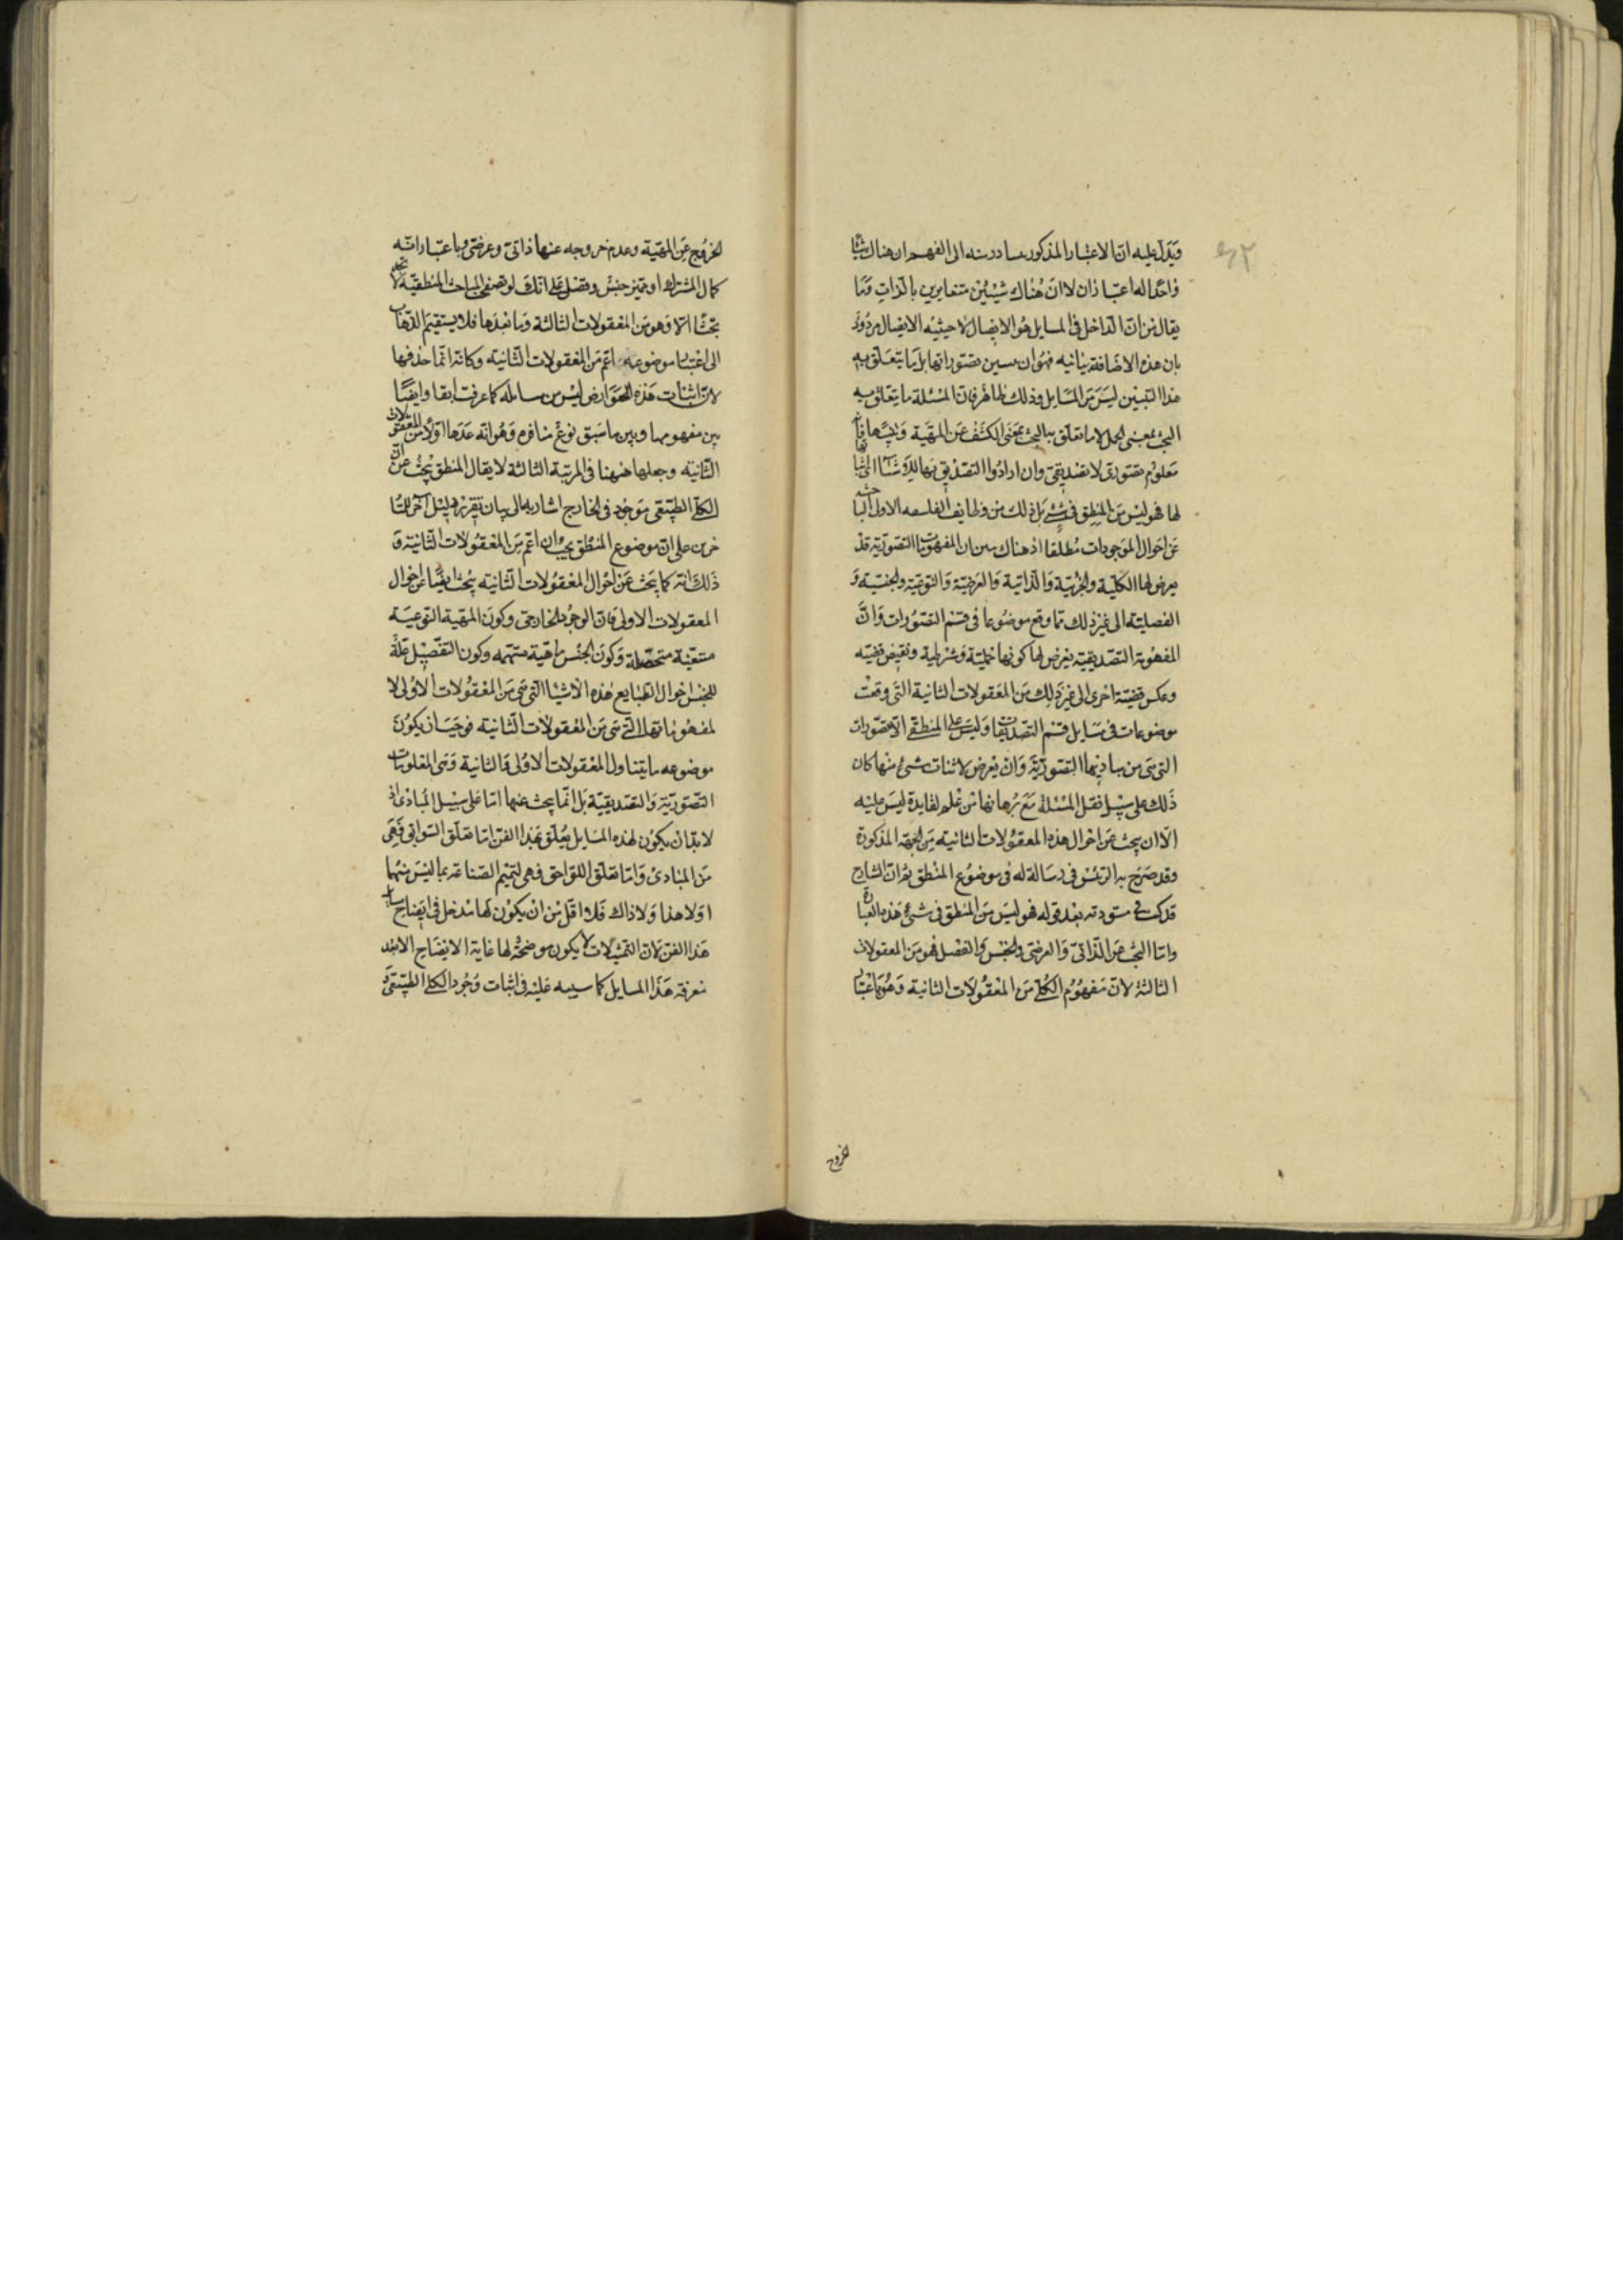 ويدل عليه ان الاعتبار المذكور متبادر منه الى الفهم ان هناك شيئا
واحدا له اعتباران لا ان هناك شيئين متغايرين بالذات وما
يقال من ان الداخل في المسايل هو الايصال لا حيثية الايصال مردود
بان هذه الاضافة بيانيه تصوراتها بل ما يتعلق به
هذا التبيين ليس من المسايل وذلك ظاهر فان المسئلة ما يتعلق به
البحث بمعنى الحمل لا ما تعلق به البحث بمعنى الكشف عن المهية
معلوم تصوري لا تصديقي وان ارادوا التصديق بها
لها فهو ليس من المنطق في شيء بل ذلك من وظايف الفلسفه الاولى الباحثه
عن احوال الموجودات مطلقا اذ هناك يبين ان المفهومات التصورية قد
يعرض لها الكلية والجزئية والذاتية والعرضية والنوعية والجنسية و
الفصلية الى غير ذلك مما وقع موضوعا في قسم التصورات وان
المفهومة التصديقية يعرض لها كونها حملية وشرطية ونقيض قضيه
وعكس قضية اخرى الى غير ذلك من المعقولات الثانية التي وقعت
موضوعات في مسايل قسم التصديقات وليس على المنطقي الا تصورات
التي هي من مباديها التصورية وان تعرض لاثبات شيء منها كان
ذلك على سبيل نقل المسئلة مع برهانها من علم لفايدة ليس عليه
الا ان يبحث عن احوال هذه المعقولات الثانية من الجهة المذكورة
وقد صرح به الرئيس في رسالة له في موضوع المنطق ثم ان الشارح
قد كتب في مسودته بعد قوله فهو ليس من المنطق في شيء هذه العبارة
واما البحث عن الذاتي والعرضي والجنس والفصل فهو من المعقولات
الثالثة لان مفهوم الكلي من المعقولات الثانية وهو باعتبار
الخروج
الخروج عن المهية وعدم خروجه عنها ذاتي وعرضي وباعتبار انه
كمال المشترك او مميز جنس وفصل على انك لو تصفحت المباحث المنطقية لا تجد
بحثا الا وهو من المعقولات الثالثة وما بعدها فلا يستقيم الذهاب
الى اعتبار موضوعه اعم من المعقولات الثانية وكانه انما حذفها
لان اثبات هذه العوارض ليس من مسايله كما عرفت انفا وايضا
بين مفهومها وبين ما سبق نوع منافرة وهو انه عدها اولا من المعقولات
الثانية وجعلها ههنا في المرتبة الثالثة لا يقال المنطق يبحث عن ان
الكلي الطبيعي موجود في الخارج اشار به الى بيان تقرير دليل اخر للمتا
خرين على ان موضوع المنطق يجب ان اعم من المعقولات الثانية و
ذلك انه كما يبحث عن احوال المعقولات الثانيه يبحث ايضا عن احوال
المعقولات الاولى فان الوجود الخارجي وكون المهية النوعية
متعينة متحصلة وكون الجنس ماهية مبهمه وكون الفصل علة
للجنس احوال الطبايع هذه الاشيا التي هي من المعقولات الاولى لا
لمفهوماتها التي هي من المعقولات الثانيه فوجب ان يكون
موضوعه ما يتناول المعقولات الاولى والثانية وهي المعلومات
التصورية والتصديقية بل انما يبحث عنها اما على سبيل المبادى اذ
لا بد ان يكون لهذه المسايل تعلق بهذا الفن اما تعلق السوابق فهي
من المبادى واما تعلق اللواحق فهي لتتميم الصناعة بما ليس منها
او لا هذا ولا ذاك فلا اقل من ان يكون لها مدخل في ايضاح مسايل
هذا الفن لان التمثيلات لا يكون موضحة لها غاية الايضاح الا بعد
معرفة هذا المسايل كما سينبه عليه في اثبات وجود الكلي الطبيعي و